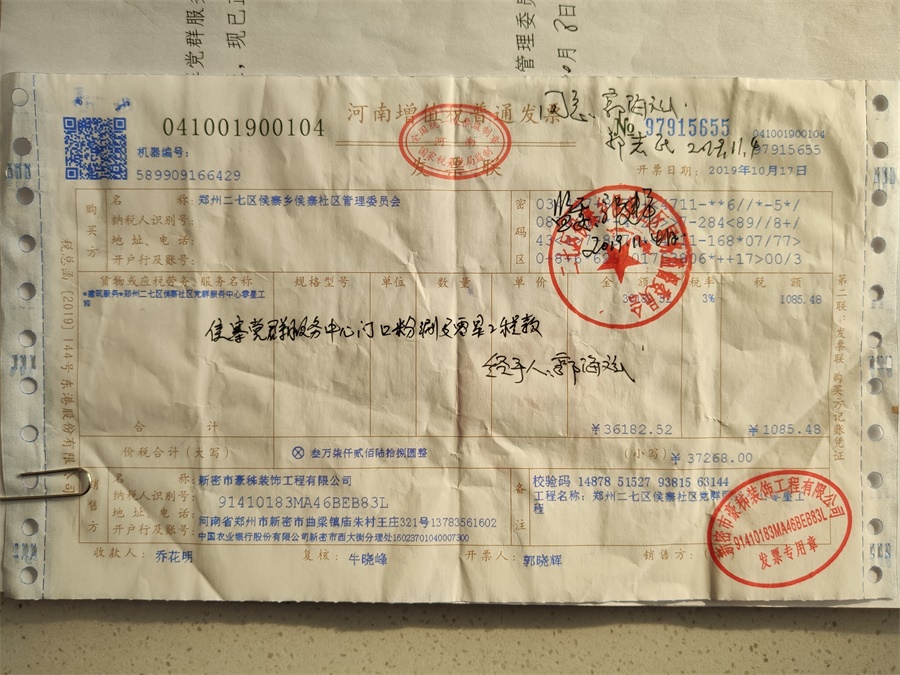 河南增值税普通发票
发票联
041001900104
No 97915655
041001900104
97915655
机器编号:
589909166429
开票日期: 2019年10月17日
同意
2019.11.
购买方
名 称: 郑州二七区侯寨乡侯寨社区管理委员会
纳税人识别号:
地 址、电 话:
开户行及账号:
密码区
货物或应税劳务、服务名称 规格型号 单位 数 量 单 价 金 额 税率 税 额
*建筑服务*郑州二七区侯寨社区党群服务中心零星工程
3% 1085.48
侯寨党群服务中心门口粉刷及零星工程款
经手人:
合 计 ¥36182.52 ¥1085.48
价税合计(大写) ⊗ 叁万柒仟贰佰陆拾捌圆整 (小写) ¥37268.00
销售方
名 称: 新密市豪秭装饰工程有限公司
纳税人识别号: 91410183MA46BEB83L
地 址、电 话: 河南省郑州市新密市曲梁镇庙朱村王庄321号13783561602
开户行及账号: 中国农业银行股份有限公司新密市西大街分理处16023701040007300
备注
校验码 14878 51527 93815 63144
工程名称: 郑州二七区侯寨社区党群
程
收款人: 乔花明 复核: 牛晓峰 开票人: 郭晓辉 销售方:
新密市豪秭装饰工程有限公司
91410183MA46BEB83L
发票专用章
税总函〔2019〕144号东港股份有限公司
第二联:发票联 购买方记账凭证
党群服务
,现已
管理委员